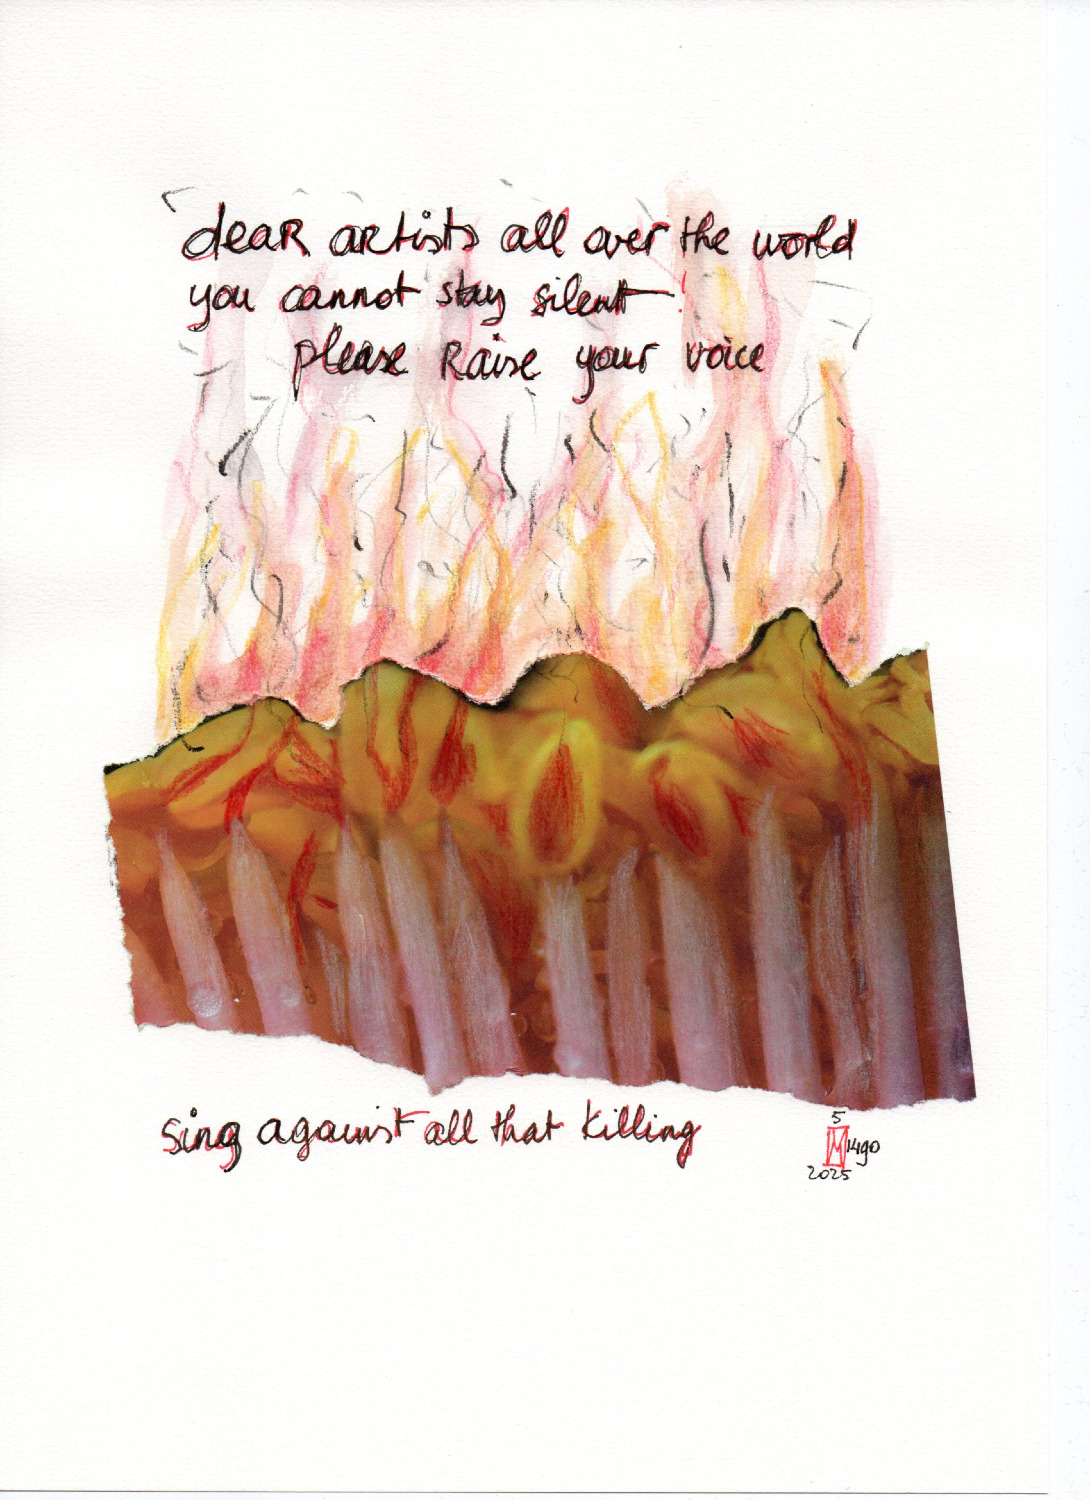 dear artists all over the world
you cannot stay silent !
please raise your voice
sing against all that killing
5
M1490
2025